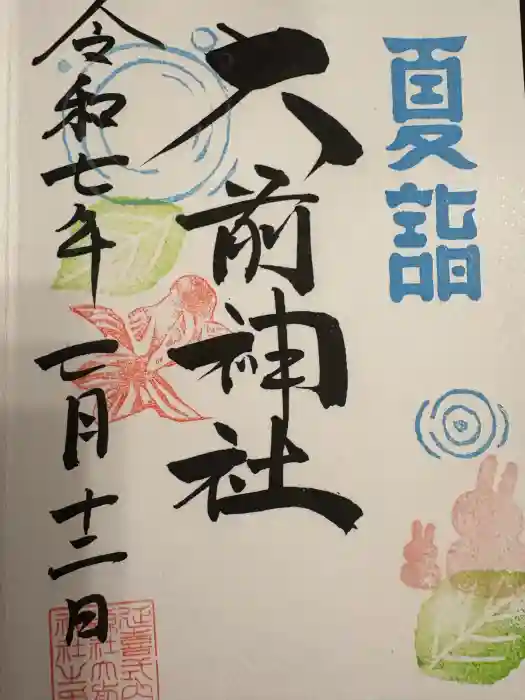 夏詣
大前神社
令和七年 七月十二日
延喜式内